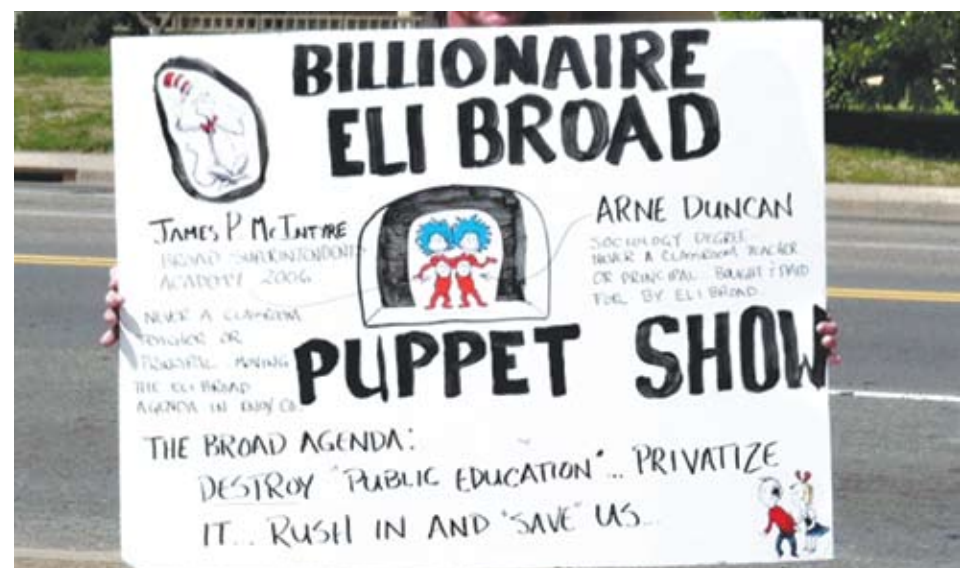 BILLIONAIRE
ELI BROAD
JAMES P. McINTYRE
BROAD SUPERINTENDENTS
ACADEMY 2006
NEVER A CLASSROOM
TEACHER OR
PRINCIPAL MOVING
THE ELI BROAD
AGENDA IN KNOX CO.
ARNE DUNCAN
SOCIOLOGY DEGREE
NEVER A CLASSROOM TEACHER
OR PRINCIPAL BOUGHT & PAID
FOR BY ELI BROAD
PUPPET SHOW
THE BROAD AGENDA:
DESTROY "PUBLIC EDUCATION"... PRIVATIZE
IT... RUSH IN AND "SAVE" US...